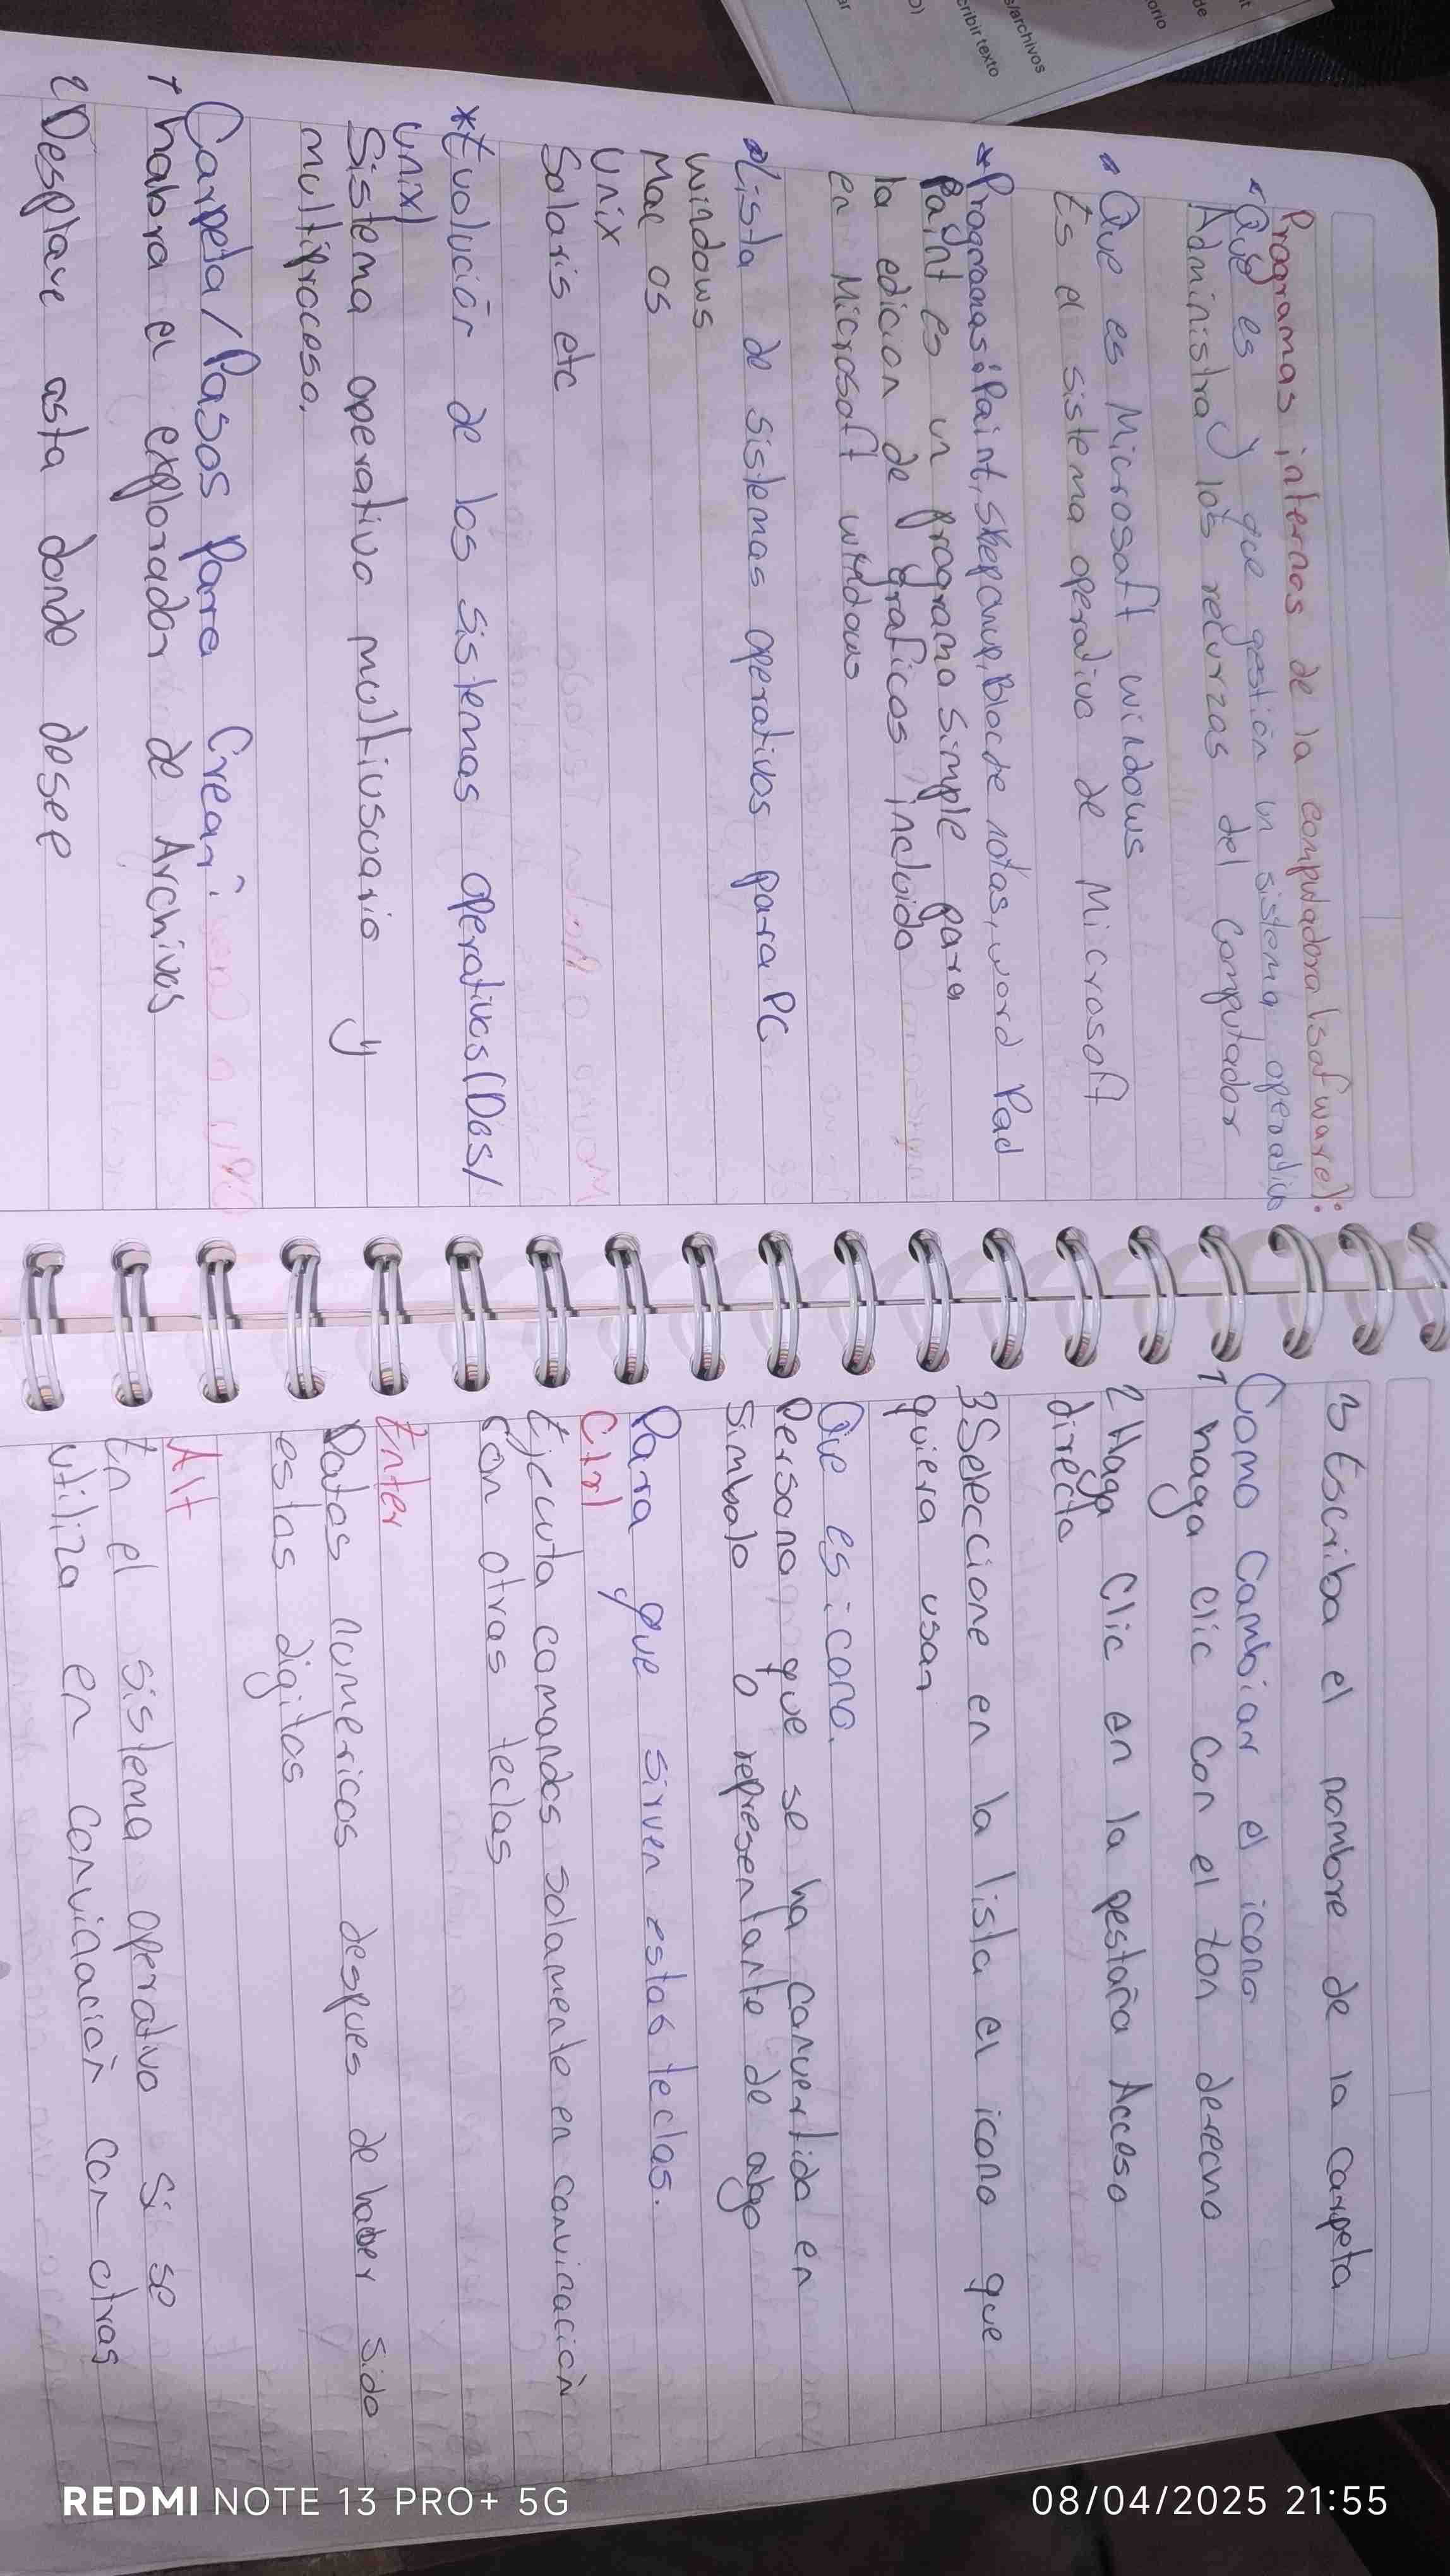 Programas internos de la computadora (sofware):
Que es y que gestión un sistema operativo
Administra los recurzas del computador
Que es Microsoft windows
Es el sistema operativo de Microsoft
*Programas: Paint, Skepchup, Bloc de notas, word Pad
Paint es un programa simple para
la edicion de graficos incluido
en Microsoft windows
Lista de sistemas operativos para PC
windows
Mac os
Unix
Solaris etc
*Evolución de los sistemas operativos (Dos/
unix)
Sistema operativo multiusuario y
multiproceso.
Carpeta/Pasos Para Crear:
1 habra el explorador de Archivos
2 Desplace asta donde desee
3 Escriba el nombre de la carpeta
Como Cambiar el icono
1 haga clic con el ton derecho
2 Haga Clic en la pestaña Acceso
directo
3 Seleccione en la lista el icono que
quiera usar
Que es icono.
Persona que se ha convertido en
simbolo o representante de algo
Para que sirven estas teclas.
Ctrl
Ejecuta comandos solamente en convicación
con otras teclas
Enter
Datos numericos despues de haber sido
estas digitos
Alt
En el sistema operativo si se
utiliza en conviación con otras
s/archivos
cribir texto
REDMI NOTE 13 PRO+ 5G
08/04/2025 21:55